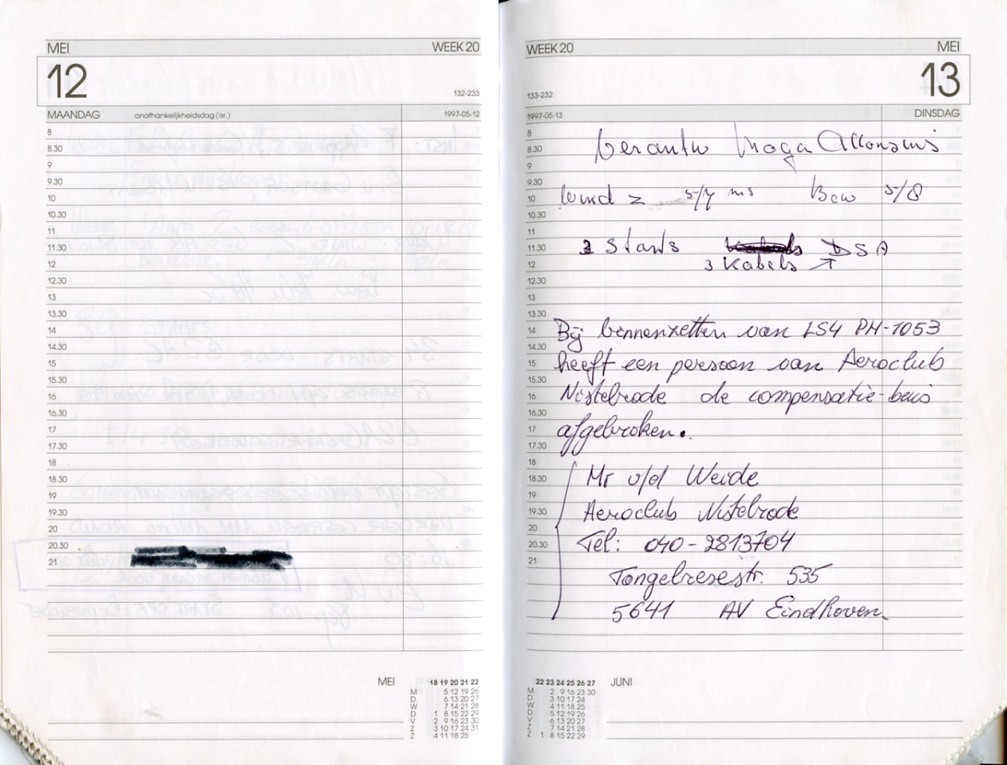 MEI WEEK 20
12
132-233
MAANDAG onafhankelijkheidsdag (isr.) 1997-05-12
8
8.30
9
9.30
10
10.30
11
11.30
12
12.30
13
13.30
14
14.30
15
15.30
16
16.30
17
17.30
18
18.30
19
19.30
20
20.30
21
MEI 18 19 20 21 22
M 5 12 19 26
D 6 13 20 27
W 7 14 21 28
D 1 8 15 22 29
V 2 9 16 23 30
Z 3 10 17 24 31
Z 4 11 18 25
WEEK 20 MEI
13
133-232
1997-05-13 DINSDAG
8
8.30
9
9.30 Wind Z 5/7 ms Bew 5/8
10
10.30
11
11.30 3 Starts DSA
12 3 Kabels
12.30
13
13.30
14 Bij binnenzetten van LS4 PH-1053
14.30
15 heeft een persoon van Aeroclub
15.30
16 Nistelrode de compensatie-buis
16.30
17 afgebroken.
17.30
18
18.30 Mr v/d Weide
19
19.30 Aeroclub Nistelrode
20
20.30 Tel: 040-2813704
21
Tongelresestr. 535
5641 AV Eindhoven
22 23 24 25 26 27 JUNI
M 2 9 16 23 30
D 3 10 17 24
W 4 11 18 25
D 5 12 19 26
V 6 13 20 27
Z 7 14 21 28
Z 1 8 15 22 29